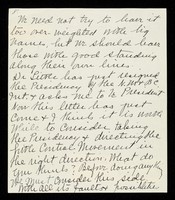 We need not try to have it
too over-weighted with big
names, but we should have
those with good standing
along their own lines.
Dr Little has just resigned
the Presidency of the
& asks me to be President
Now this letter has just
come & I think it is worth
while to consider taking
the Presidency & directing the
Birth Control Movement in
the right direction. What do
you think? Before doing anything
we must consider this side
With all its faults & possibilities